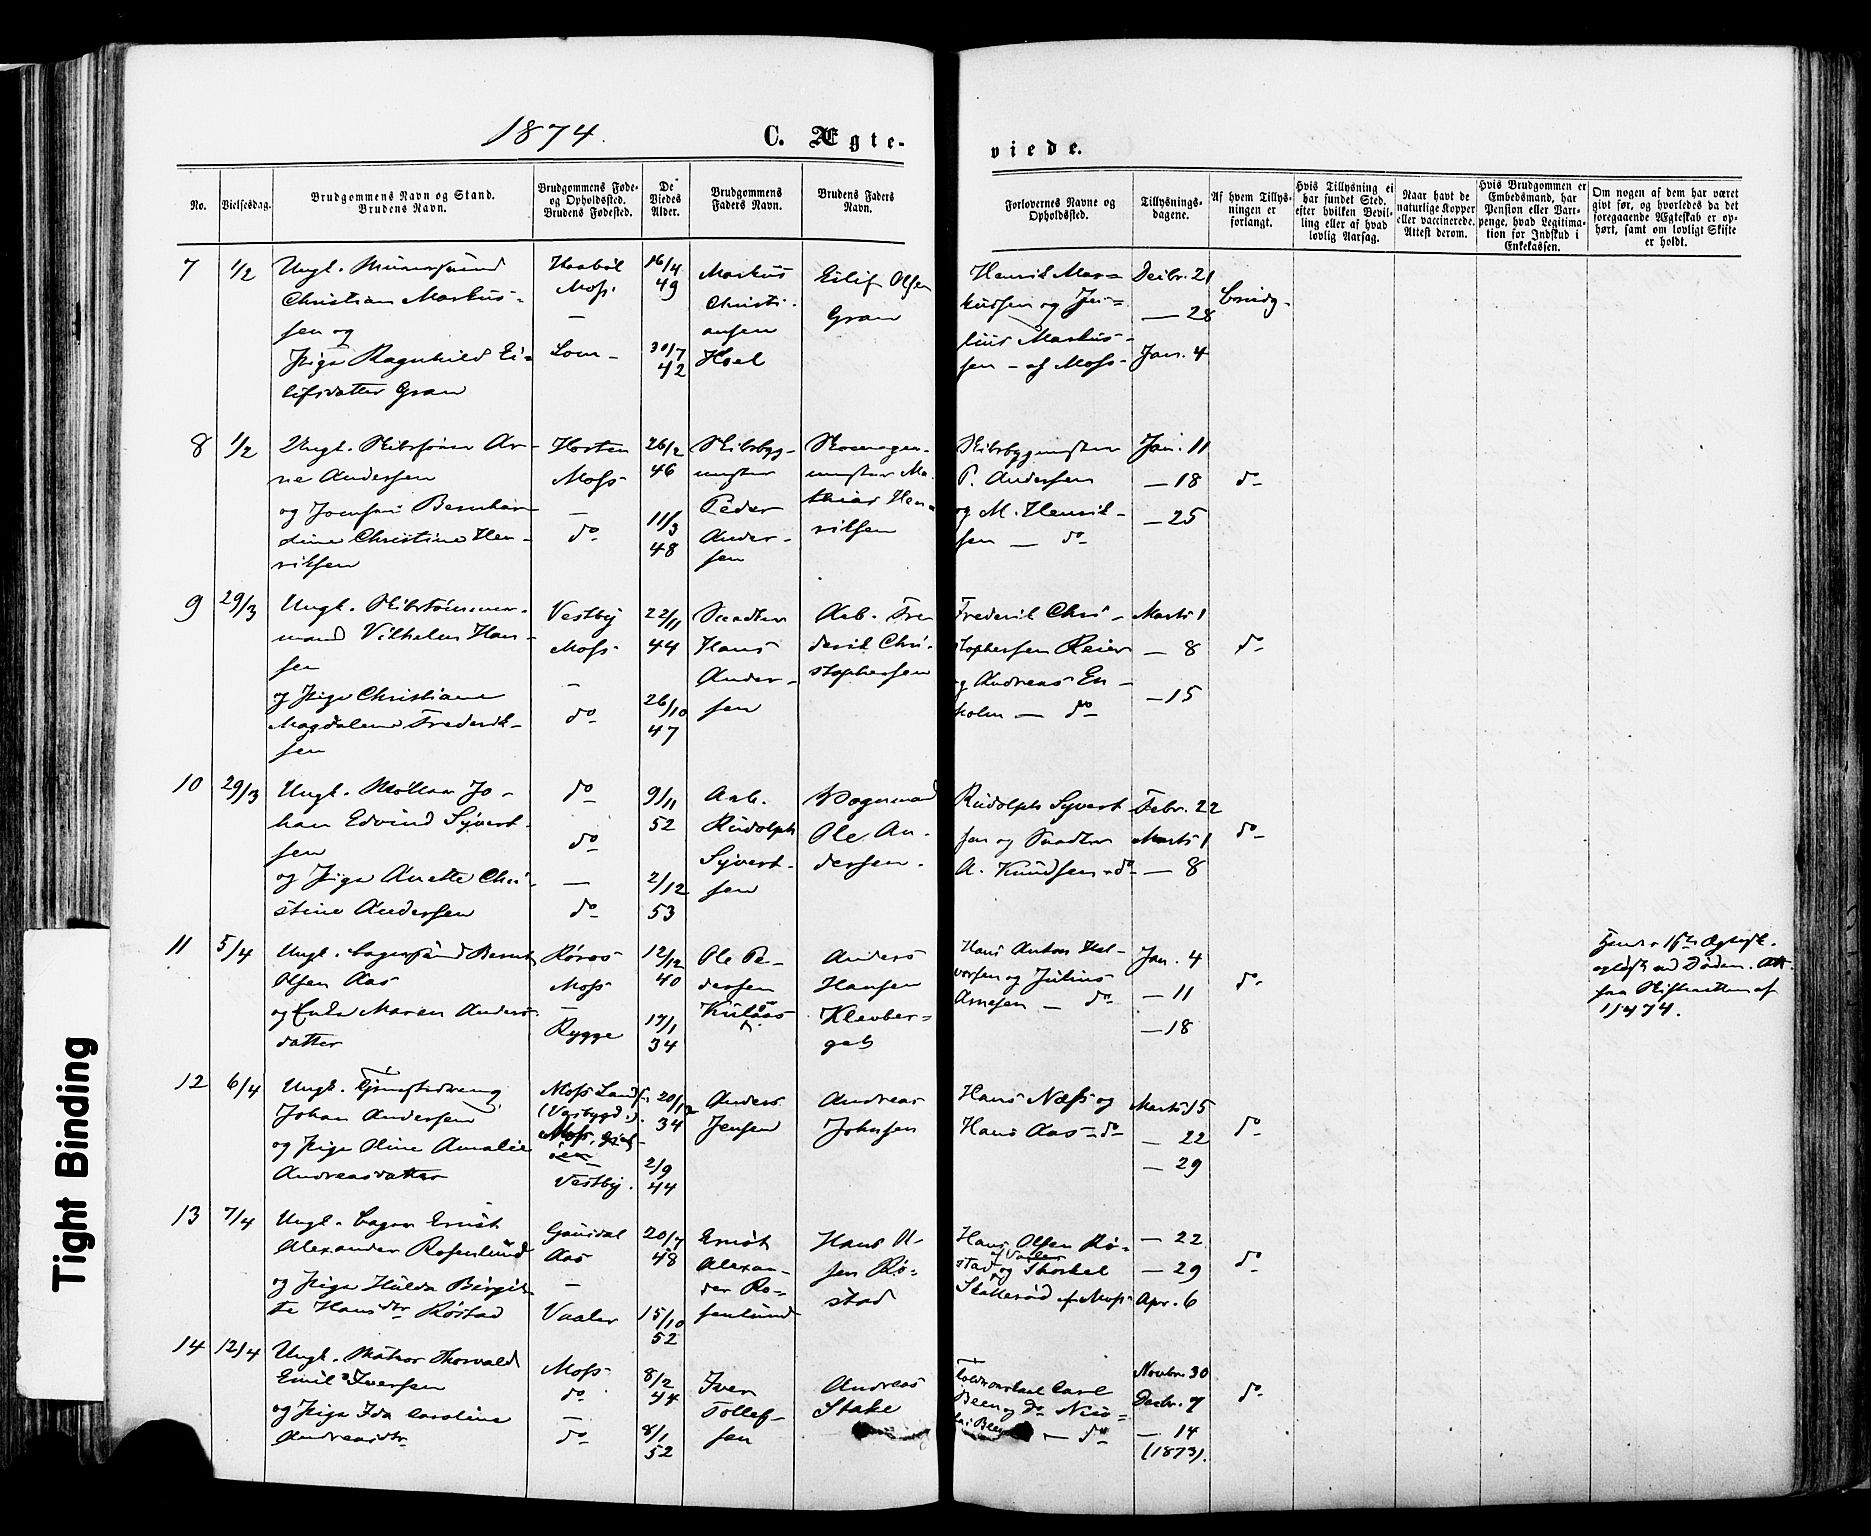 1874.
C. Ægte-
viede.
No.
Vielsesdag.
Brudgommens Navn og Stand.
Brudens Navn.
Brudgommens Føde-
og Opholdssted.
Brudens Fødested.
De
Viedes
Alder.
Brudgommens
Faders Navn.
Brudens Faders
Navn.
Forlovernes Navne og
Opholdssted.
Tillysnings-
dagene.
Af hvem Tillys-
ningen er
forlangt.
Hvis Tillysning ei
har fundet Sted,
efter hvilken Bevil-
ling eller af hvad
lovlig Aarsag.
Naar havt de
naturlige Kopper
eller vaccinerede.
Attest derom.
Hvis Brudgommen er
Embedsmand, har
Pension eller Vart-
penge, hvad Legitima-
tion for Indskud i
Enkekassen.
Om nogen af dem har været
givt før, og hvorledes da det
foregaaende Ægteskab er op-
hørt, samt om lovligt Skifte
er holdt.
7
1/2
Ungk. Murersvend
Christian Markus-
sen og
Pige Ragnhild Ei-
lifsdatter Gran
Haabøl
Moss.
—
Lom
16/4
49
30/7
42
Markus
Christi-
ansen
Hoel
Eilif Olsen
Gran
Henrik Mar-
kussen og Ju-
lius Markus-
sen - af Moss-
Decbr. 21
— 28
Jan. 4
Brudg.
8
1/2
Ungk. Skibsfører Ar-
ne Andersen
og Jomfru Bernhar-
dine Christine Hen-
riksen
Horten
Moss
—
do
26/2
46
11/3
48
Skibsbyg-
mester
Peder
Ander-
sen
mester Ma-
thias Hen-
riksen
Skibsbygmester
P. Andersen
og M. Henrik-
sen — do
Jan. 11
— 18
— 25
do
9
29/3
Ungk. Skibstømmer-
mand Vilhelm Han-
sen
og Pige Christiane
Magdalene Frederik-
sen
Vestby
Moss
—
do
22/11
44
26/10
47
Snedker
Hans
Ander-
sen
Arb. Fre
derik Chri-
stophersen
Frederik Chri-
stophersen Reier
og Andreas En-
holm — do
Marts 1
— 8
— 15
do
10
29/3
Ungk. Møller Jo-
han Edvind Syvert-
sen
og Pige Anette Chri-
stine Andersen
do
do
—
do
9/11
52
2/12
53
Arb.
Rudolph
Syvert-
sen
Vognmand
Ole An-
dersen.
Rudolph Syvert
sen og Snedker
A. Knudsen - do
Febr. 22
Marts 1
— 8
do
11
5/4
Ungk. Bagersvend Bernt
Olsen Aas
og Enke Maren Anders
datter
Røros
Moss
—
Rygge
12/12
40
17/1
34
Ole Pe-
dersen
Anders
Hansen
Klevber-
get
Hans Anton Hal-
vorsen og Julius
Arnesen — do
Jan. 4
— 11
— 18
do
faa Skifteretten af
12
6/4
Ungk. Tjenestedreng
Johan Andersen
og Pige Oline Amalie
Andreasdatter
Moss Lands.
Vestby.
20/12
34
2/9
44
Anders
Jensen
Andreas
Johnsen
Hans Næss og
Hans Aas - do
Marts 15
— 22
— 29
do
13
7/4
Ungk. Bager Ernst
Alexander Rosenlund
og Pige Hulda Birgit-
te Hansdtr Røstad
Gausdal
Aas
—
Vaaler
20/7
48
15/10
52
Ernst
Alexan-
der Ro-
senlund
Hans Ol-
sen Rø-
stad
Hans Olsen Rø-
af Vaaler
stad og Thorkel
Skallerød af Moss
— 22
— 29
Apr. 6
do
14
12/4
Ungk. Matros Thorvald
Emil Iversen
og Pige Ida Caroline
Andreasdtr
Moss
do
—
do
8/2
44
8/1
52
Iver
Tollef-
sen
Andreas
Stake
Novbr. 30
Decbr. 7
— 14
(1873).
do
Tight Binding